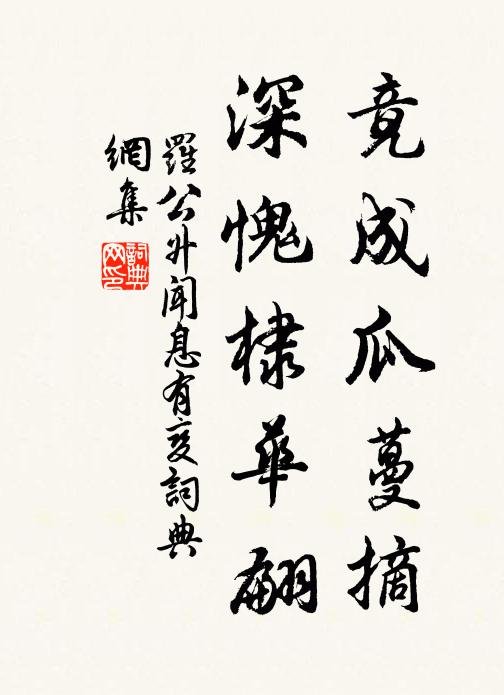 竟成瓜蔓摘
深愧棣華翩
羅公升聞息有變詞典
網集
詞典
網印